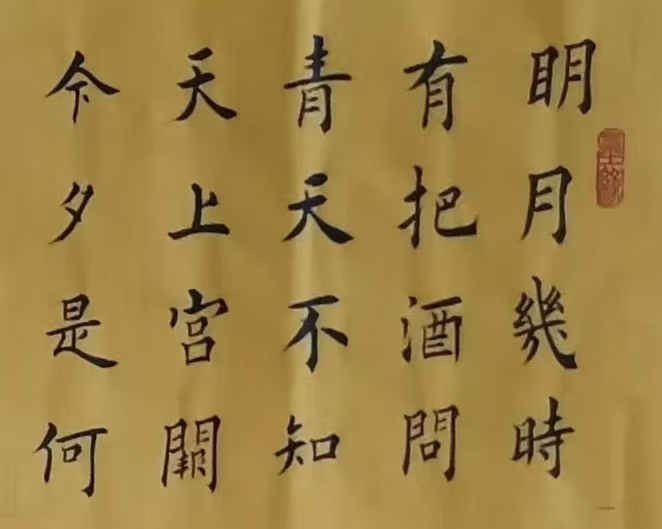 明月幾時
有把酒問
青天不知
天上宮闕
今夕是何